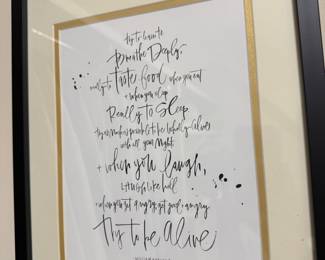 try to learn to
Breathe Deeply
really to taste food when you eat
+ when you sleep
Really to Sleep
try as much as possible to be wholly Alive
with all your might
+ when you laugh,
LAUGH like hell
+ when you get angry, get good + angry
Try to be Alive